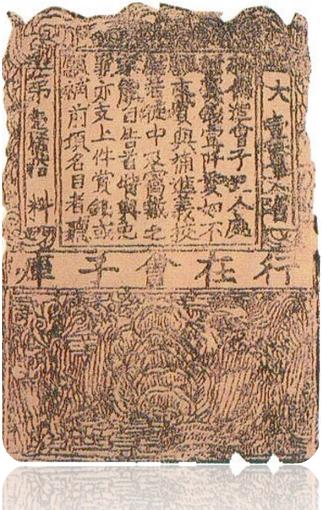 大壹貫文省
敕偽造會子犯人處
斬賞錢壹仟貫如不
願支賞與補進義校
尉若徒中及窩藏之
家能自告首特與免
罪亦支上件賞錢或
願補前項名目者聽
第 料
行在會子庫